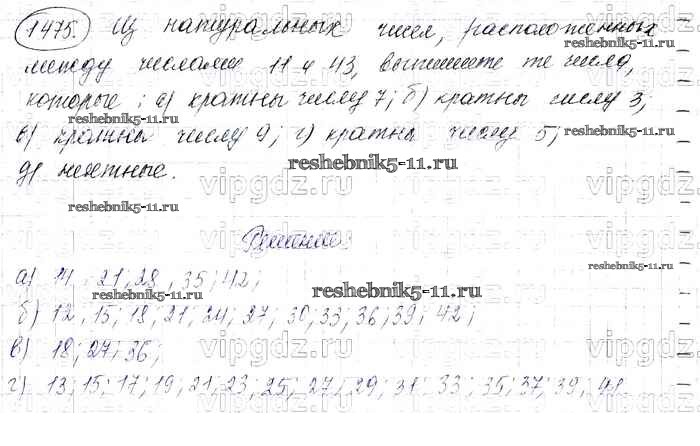 1475. Из натуральных чисел, расположенных
reshebnik5-11.ru
между числами 11 и 43, выпишите те числа,
которые: а) кратны числу 7; б) кратны числу 3;
reshebnik5-11.ru
в) кратны числу 9; г) кратны числу 5;
reshebnik5-11.ru
reshebnik5-11.ru
д) нечетные.
vipgdz.ru vipgdz.ru vipgdz.ru
reshebnik5-11.ru
Решение
а) 14; 21; 28; 35; 42;
reshebnik5-11.ru
reshebnik5-11.ru
reshebnik5-11.ru
б) 12; 15; 18; 21; 24; 27; 30; 33; 36; 39; 42;
в) 18; 27; 36;
vipgdz.ru vipgdz.ru
г) 13; 15; 17; 19; 21; 23; 25; 27; 29; 31; 33; 35; 37; 39; 41